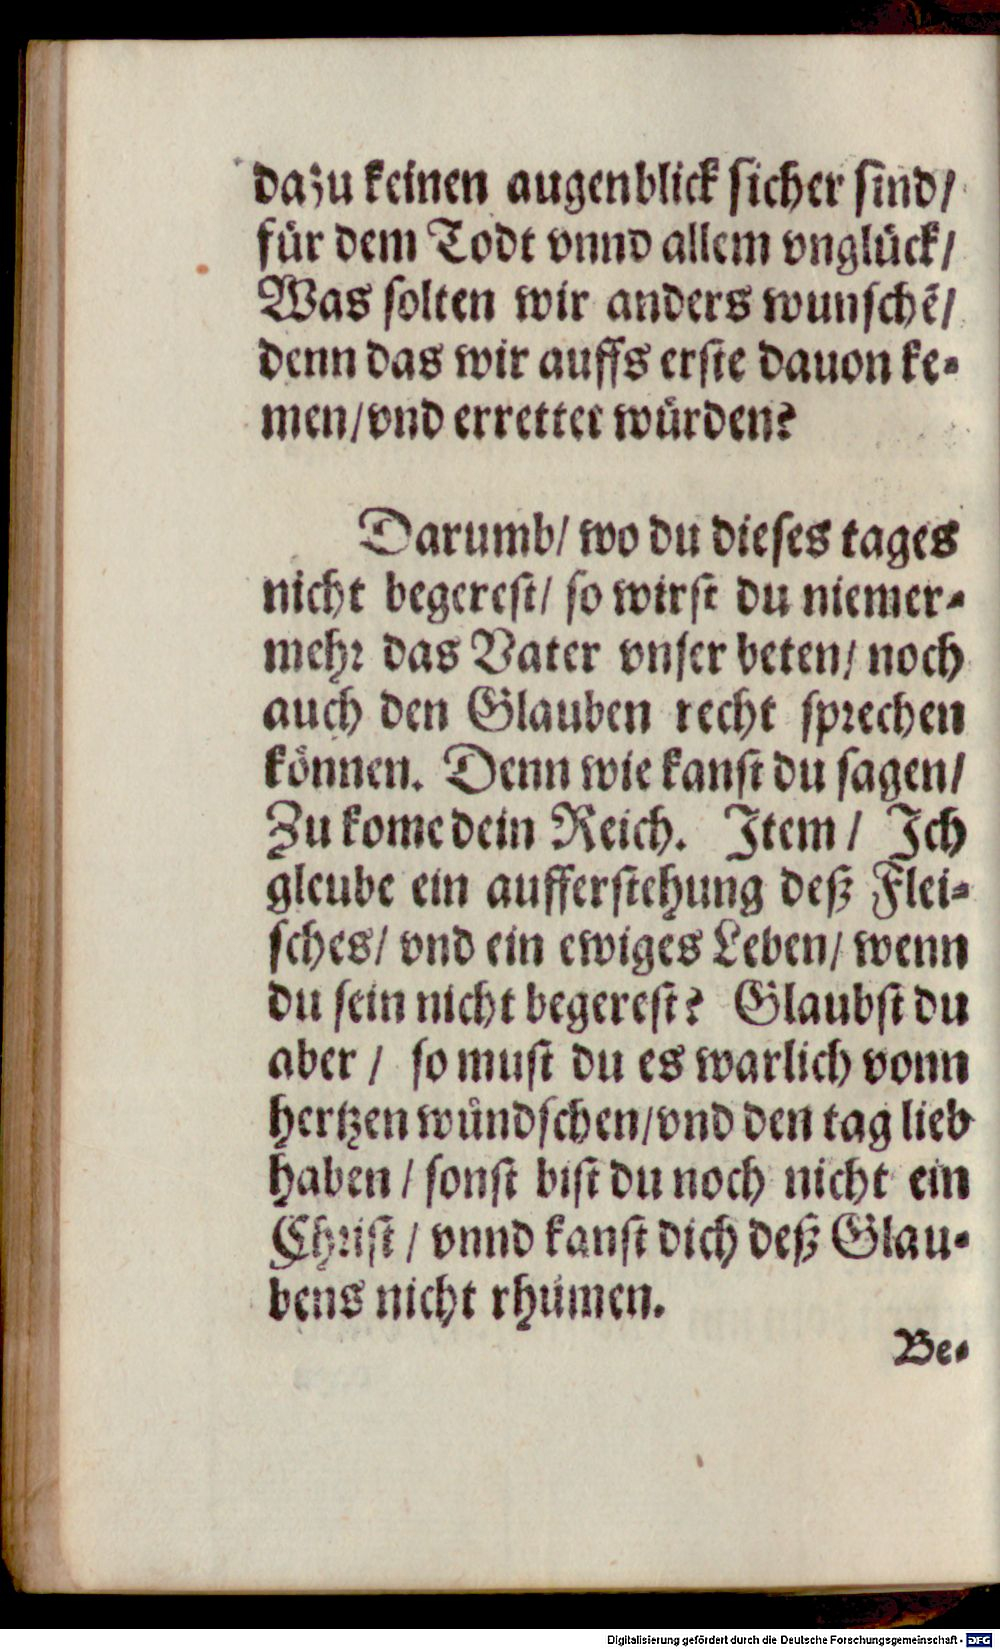 dazu keinen augenblick sicher sind/
für dem Todt vnnd allem vnglück/
Was solten wir anders wunschē/
denn das wir auffs erste dauon ke-
men/vnd errettet würden?
Darumb/ wo du dieses tages
nicht begerest/ so wirst du niemer-
mehr das Vater vnser beten/ noch
auch den Glauben recht sprechen
können. Denn wie kanst du sagen/
Zu kome dein Reich. Item/ Ich
gleube ein aufferstehung deß Flei-
sches/ vnd ein ewiges Leben/ wenn
du sein nicht begerest? Glaubst du
aber/ so must du es warlich vonn
hertzen wündschen/vnd den tag lieb
haben/ sonst bist du noch nicht ein
Christ/ vnnd kanst dich deß Glau-
bens nicht rhümen.
Be-
Digitalisierung gefördert durch die Deutsche Forschungsgemeinschaft - DFG